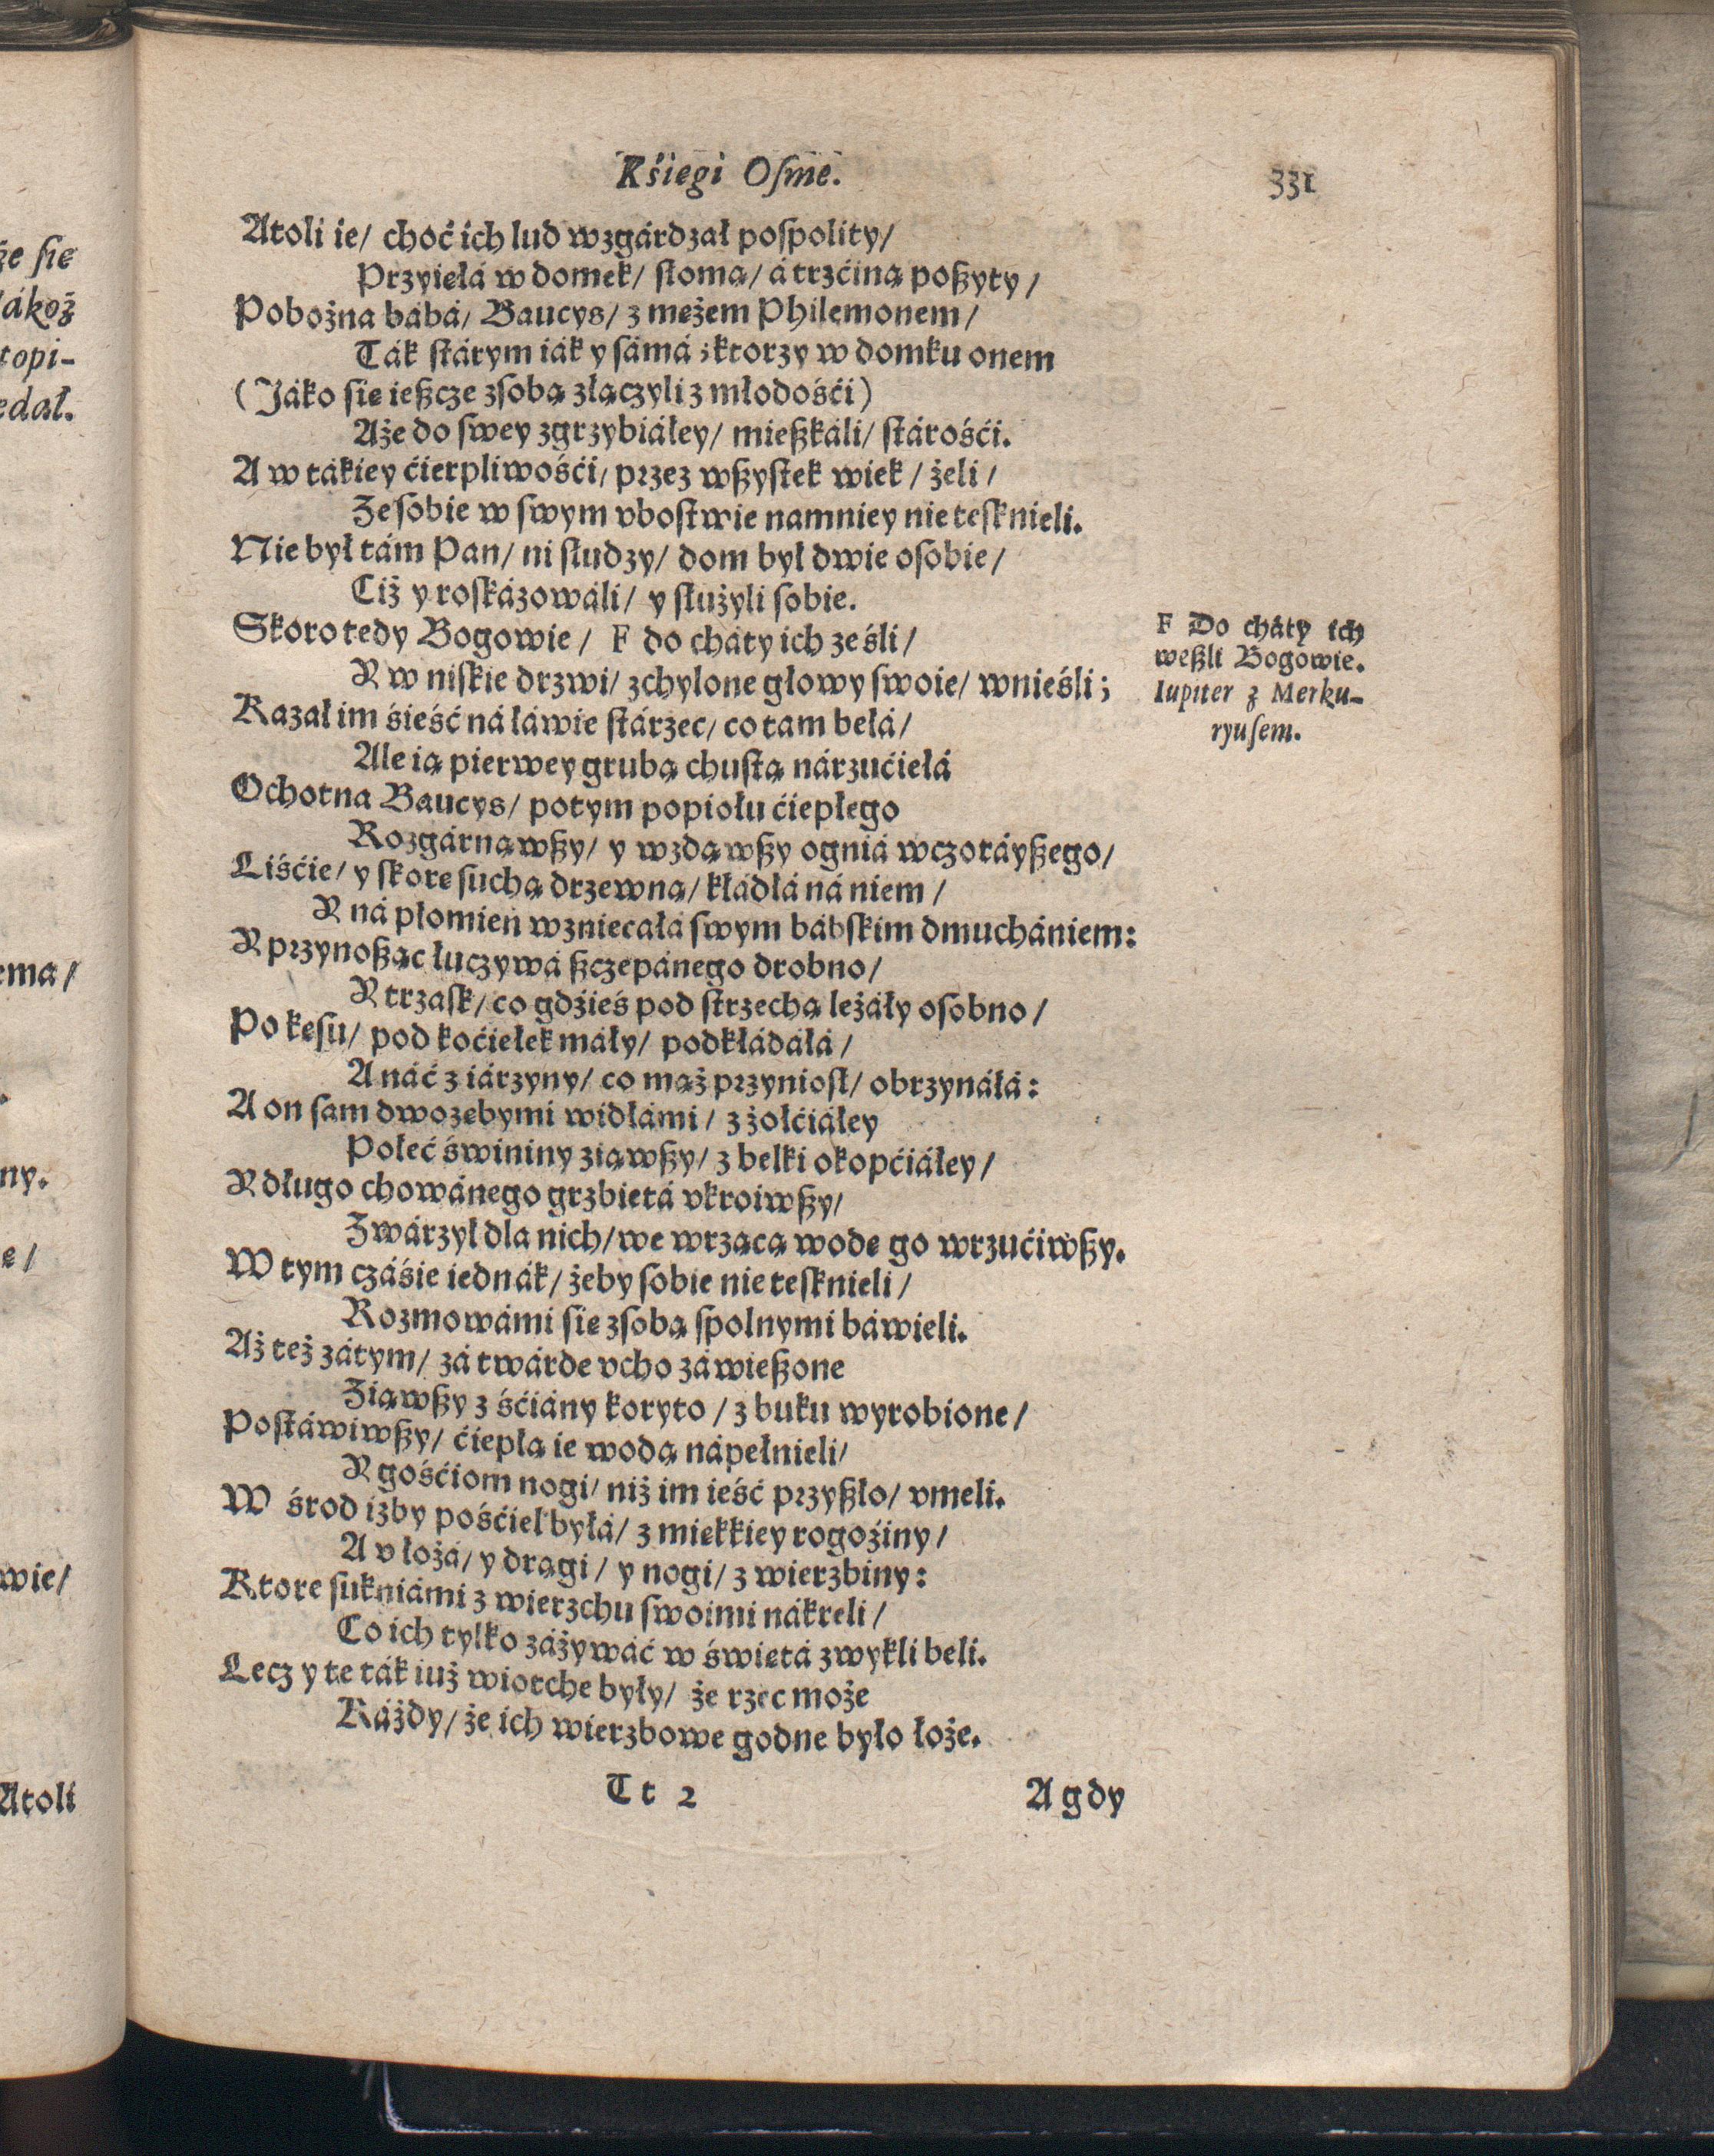 że się
Jákoż
topi-
edał.
ema/
ny.
e/
wie/
Atoli
Kśięgi Osme.
331
Atoli ie/ choć ich lud wzgárdzał pospolity/
Przyięłá w domek/ słomą/ á trzćiną poszyty/
Pobożna bábá/ Baucys/ z mężem Philemonem/
Ták stárym iák y sámá; ktorzy w domku onem
(Jáko się ieszcze zsobą złączyli z młodośći)
Aże do swey zgrzybiáłey/ mieszkáli/ stárośći.
A w tákiey ćierpliwośći/ przez wszystek wiek/ żeli/
Że sobie w swym vbostwie namniey nie tesknieli.
Nie był tám Pan/ ni słudzy/ dom był dwie osobie/
Ciż y roskázowáli/ y służyli sobie.
Skoro tedy Bogowie/ F do cháty ich ześli/
Y w niskie drzwi/ zchylone głowy swoie/ wnieśli;
Kazał im śieść ná łáwie stárzec/ co tam belá/
Ale ią pierwey grubą chustą nárzućiełá
Ochotna Baucys/ potym popiołu ćiepłego
Rozgárnąwszy/ y wzdąwszy ogniá wczoráyszego/
Liśćie/ y skorę suchą drzewną/ kłádłá ná niem/
Y ná płomień wzniecałá swym bábskim dmuchániem:
Y przynosząc łuczywá szczepánego drobno/
Y trzask/ co gdźieś pod strzechą leżáły osobno/
Po kęsu/ pod koćiełek máły/ podkłádáłá/
A náć z iárzyny/ co mąż przyniosł/ obrzynáłá:
A on sam dwozębymi widłámi/ z żołćiáłey
Połeć świniny ziąwszy/ z belki okopćiáłey/
Y długo chowánego grzbietá vkroiwszy/
Zwárzył dla nich/ we wrzącą wodę go wrzućiwszy.
W tym czáśie iednák/ żeby sobie nie tesknieli/
Rozmowámi się zsobą spolnymi báwieli.
Aż też zátym/ zá twárde vcho záwieszone
Ziąwszy z śćiány koryto/ z buku wyrobione/
Postáwiwszy/ ćiepłą ie wodą nápełnieli/
Y gośćiom nogi/ niż im ieść przyszło/ vmeli.
W środ izby pośćiel byłá/ z miękkiey rogoźiny/
A v łożá/ y drągi/ y nogi/ z wierzbiny:
Ktore sukniámi z wierzchu swoimi nákreli/
Co ich tylko záżywáć w świętá zwykli beli.
Lecz y te ták iuż wiotche były/ że rzec może
Káżdy/ że ich wierzbowe godne było łoże.
F Do cháty ich
weszli Bogowie.
Iupiter z Merku-
ryusem.
Tt 2
A gdy